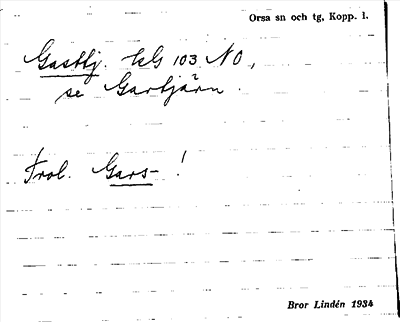 Orsa sn och tg, Kopp. l.
Gasttj. kG 103 NO,
se Gartjärn.
Trol. Gars- !
Bror Lindén 1934